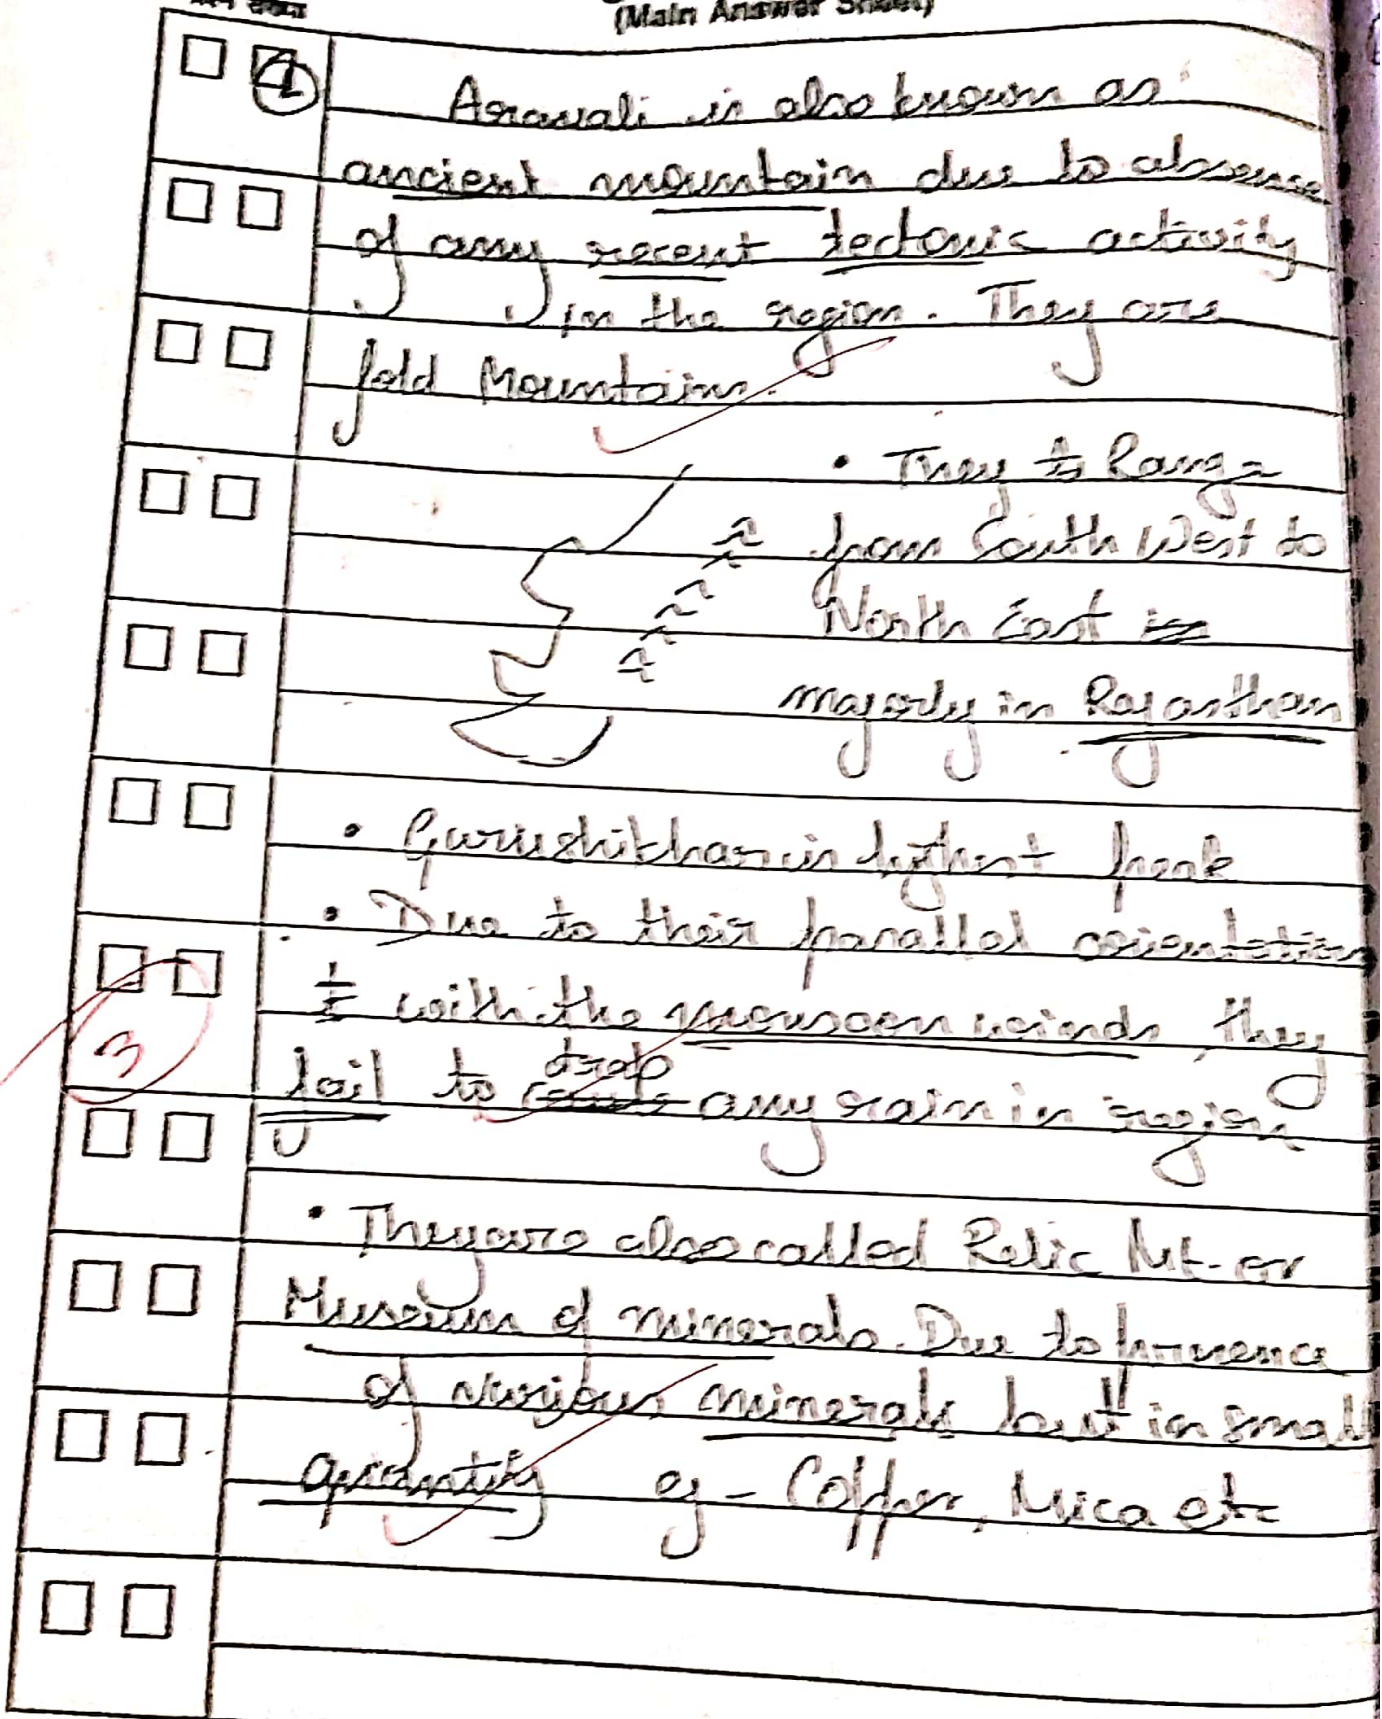 (Main Answer Sheet)
1 Aravali is also known as
ancient mountain due to absense
of any recent tectonic activity
in the region. They are
fold Mountains.
• They to Range
from South West to
North East is
majorly in Rajasthan
• Gurushikhar is highest peak
• Due to their parallal orientation
with the monsoon winds, they
3
fail to drop any rain in region
• They are also called Relic Mt. or
Museum of minerals. Due to
of various minerals but in small
quantity eg - Copper, Mica etc